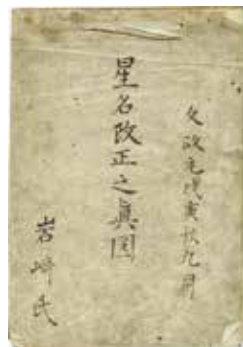 文政元戊寅秋九月
星名改正之眞図
岩崎氏